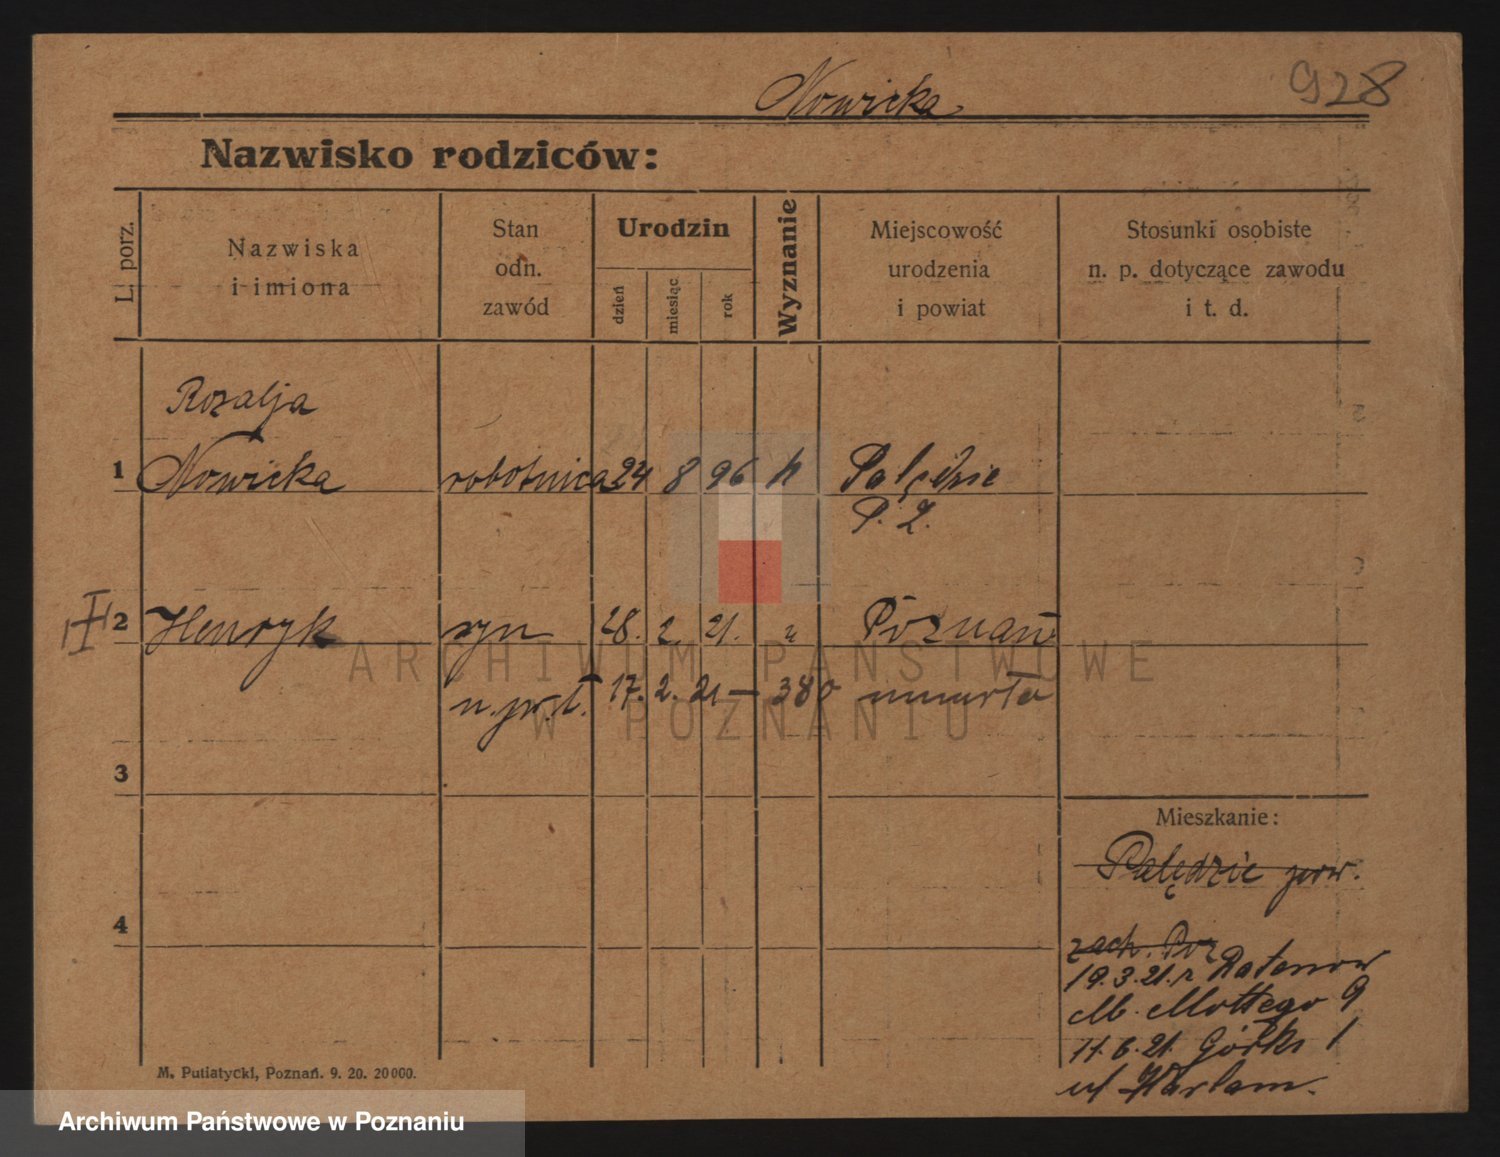 Nowicka
928
Nazwisko rodziców:
L. porz.
Nazwiska
i imiona
Stan
odn.
zawód
Urodzin
dzień
miesiąc
rok
Wyznanie
Miejscowość
urodzenia
i powiat
Stosunki osobiste
n. p. dotyczące zawodu
i t. d.
Rozalja
1 Nowicka robotnica 24 8 96 k
P. Z.
2 Henryk syn 28. 2. 21. " Poznań
17. 2. 21 — 380 umarła
3
4
Mieszkanie:
Palędzie pow.
zach. Poz
19.3.21. r
Mottego 9
21. Górki 1
ul
M. Putiatycki, Poznań. 9. 20. 20000.
ARCHIWUM PAŃSTWOWE
W POZNANIU
Archiwum Państwowe w Poznaniu